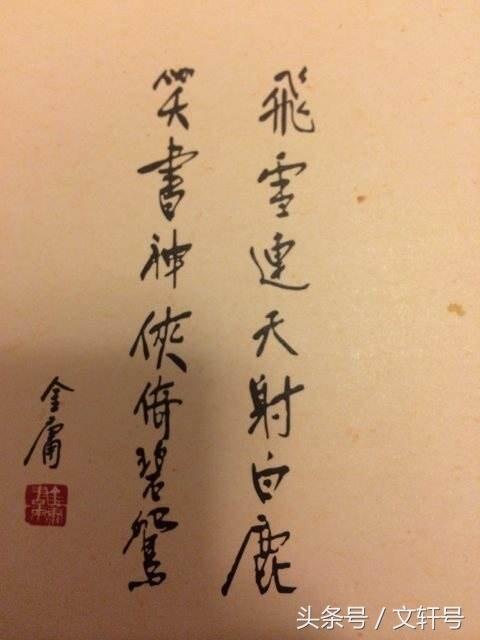 飛雪連天射白鹿
笑書神俠倚碧鴛
金庸
头条号 / 文轩号